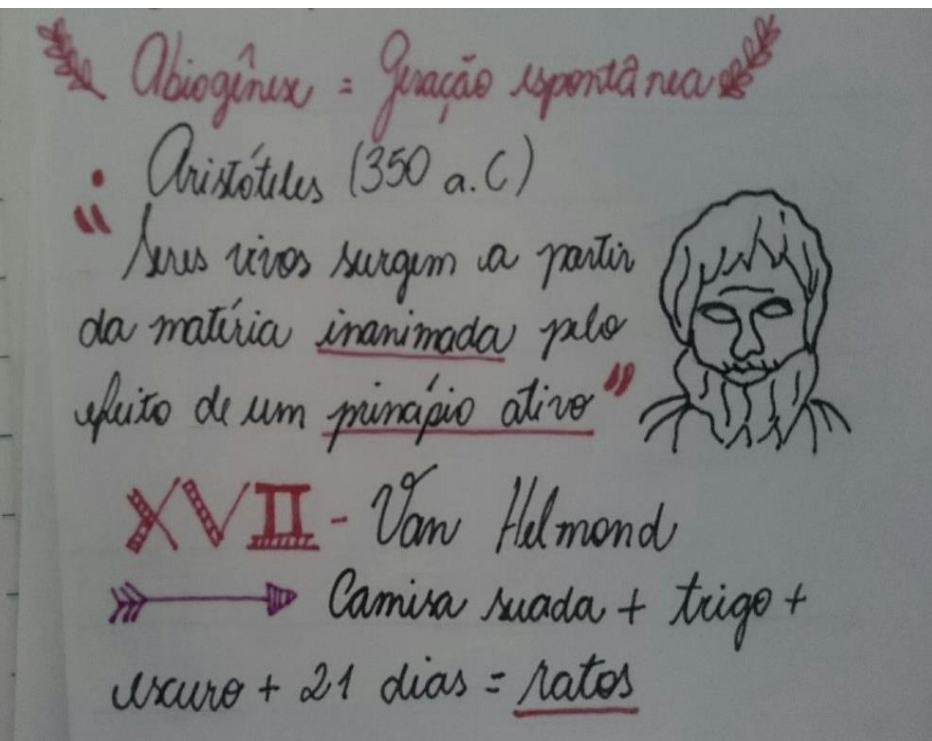 Abiogênese = Geração espontânea
• Aristóteles (350 a.C)
"Seres vivos surgem a partir
da matéria inanimada pelo
efeito de um princípio ativo"
XVII - Van Helmond
Camisa suada + trigo +
escuro + 21 dias = ratos